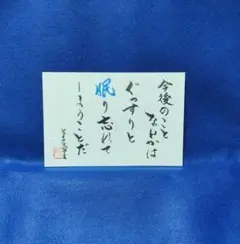 今後のこと
なんかは
ぐっすりと
眠り忘れて
しまうことだ